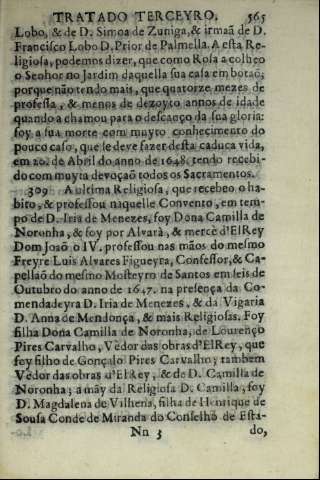 TRATADO TERCEYRO. 565
Lobo, & de D. Simoa de Zuniga, & irmaã de D.
Francisco Lobo D. Prior de Palmella. A esta Re-
ligiosa, podemos dizer, que como Rosa a colheo
o Senhor no Jardim daquella sua casa em botaõ,
porque não tendo mais, que quatorze mezes de
professa, & menos de dezoyto annos de idade
quando a chamou para o descanço da sua gloria:
foy a sua morte com muyto conhecimento do
pouco caso, que se deve fazer desta caduca vida,
em 20. de Abril do anno de 1648. tendo recebi-
do com muyta devoçaõ todos os Sacramentos.
309 A ultima Religiosa, que recebeo o ha-
bito, & professou naquelle Convento, em tem-
po de D. Iria de Menezes, foy Dona Camilla de
Noronha, & foy por Alvarà, & mercè d'ElRey
Dom Joaõ o IV. professou nas mãos do mesmo
Freyre Luis Alvares Figueyra, Confessor, & Ca-
pellaõ do mesmo Mosteyro de Santos em seis de
Outubro do anno de 1647. na presença da Co-
mendadeyra D. Iria de Menezes, & da Vigaria
D. Anna de Mendonça, & mais Religiosas. Foy
filha Dona Camilla de Noronha, de Lourenço
Pires Carvalho, Vèdor das obras d'ElRey, que
foy filho de Gonçalo Pires Carvalho; tambem
Vèdor das obras d'ElRey, & de D. Camilla de
Noronha; a mãy da Religiosa D. Camilla, foy
D. Magdalena de Vilhena, filha de Henrique de
Sousa Conde de Miranda do Conselho de Esta-
Nn 3 do,